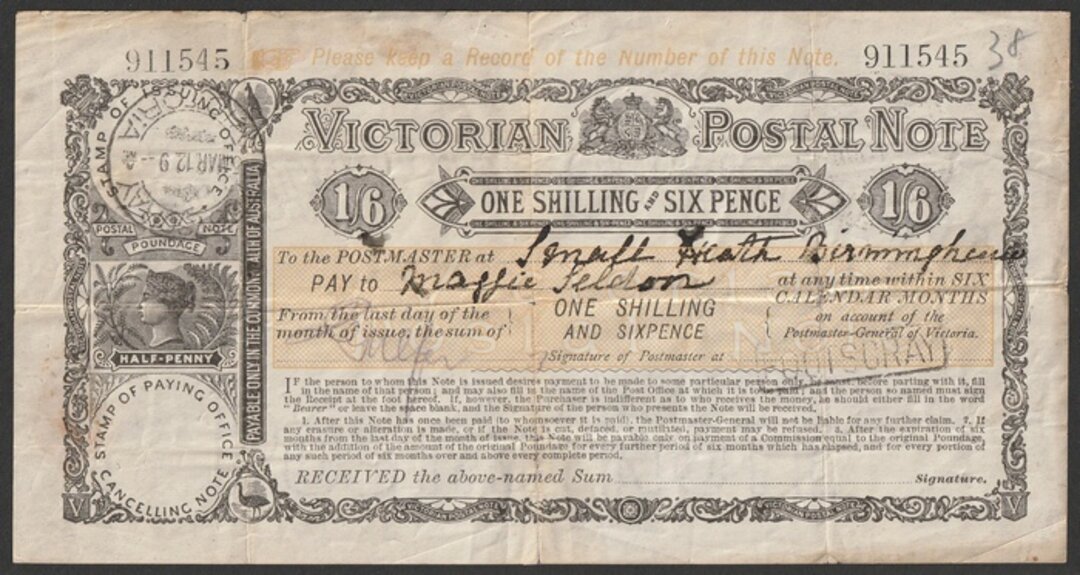 911545 Please keep a Record of the Number of this Note. 911545 38
STAMP OF ISSUING OFFICE
VICTORIA
MAR 12 9
POSTAL NOTE
POUNDAGE
HALF-PENNY
STAMP OF PAYING OFFICE
CANCELLING NOTE
V
PAYABLE ONLY IN THE COMMON ALTH OF AUSTRALIA
VICTORIAN POSTAL NOTE
1/6 ONE SHILLING AND SIX PENCE 1/6
To the POSTMASTER at Small Heath Birmingham
PAY to Maggie Seldon at any time within SIX
CALENDAR MONTHS
From the last day of the month of issue, the sum of
ONE SHILLING
AND SIXPENCE
on account of the
Postmaster-General of Victoria.
Signature of Postmaster at FOOTSCRAY
IF the person to whom this Note is issued desires payment to be made to some particular person only, he must, before parting with it, fill
in the name of that person; and may also fill in the name of the Post Office at which it is to be paid; and the person so named must sign
the Receipt at the foot hereof. If, however, the Purchaser is indifferent as to who receives the money, he should either fill in the word
"Bearer" or leave the space blank, and the Signature of the person who presents the Note will be received.
1. After this Note has once been paid (to whomsoever it is paid), the Postmaster-General will not be liable for any further claim. 2. If
any erasure or alteration is made, or if the Note is cut, defaced, or mutilated, payment may be refused. 3. After the expiration of six
months from the last day of the month of issue, this Note will be payable only on payment of a Commission equal to the original Poundage,
with the addition of the amount of the original Poundage for every further period of six months which has elapsed, and for every portion of
any such period of six months over and above every complete period.
RECEIVED the above-named Sum Signature.
V
VICTORIAN POSTAL NOTE